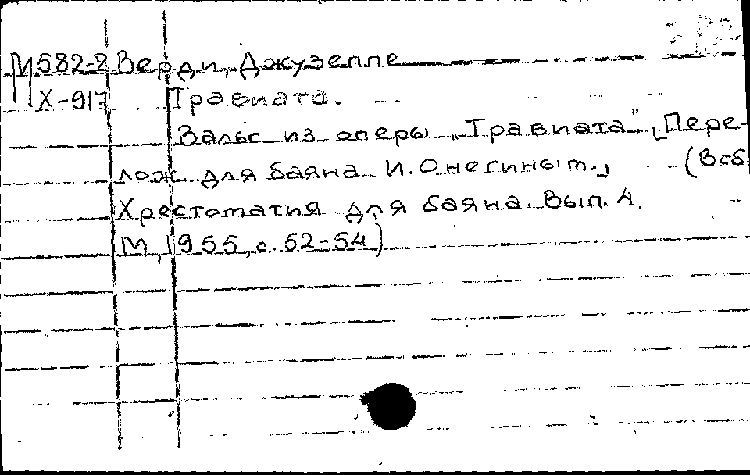 М582-2 Верди, Джузеппе
X-917 Травиата.
Вальс из оперы „Травиата". [Пере-
лож. для баяна И. Онегиным.], (В сб
Хрестоматия для баяна. Вып. 4.
М, 1955, с. 52-54)